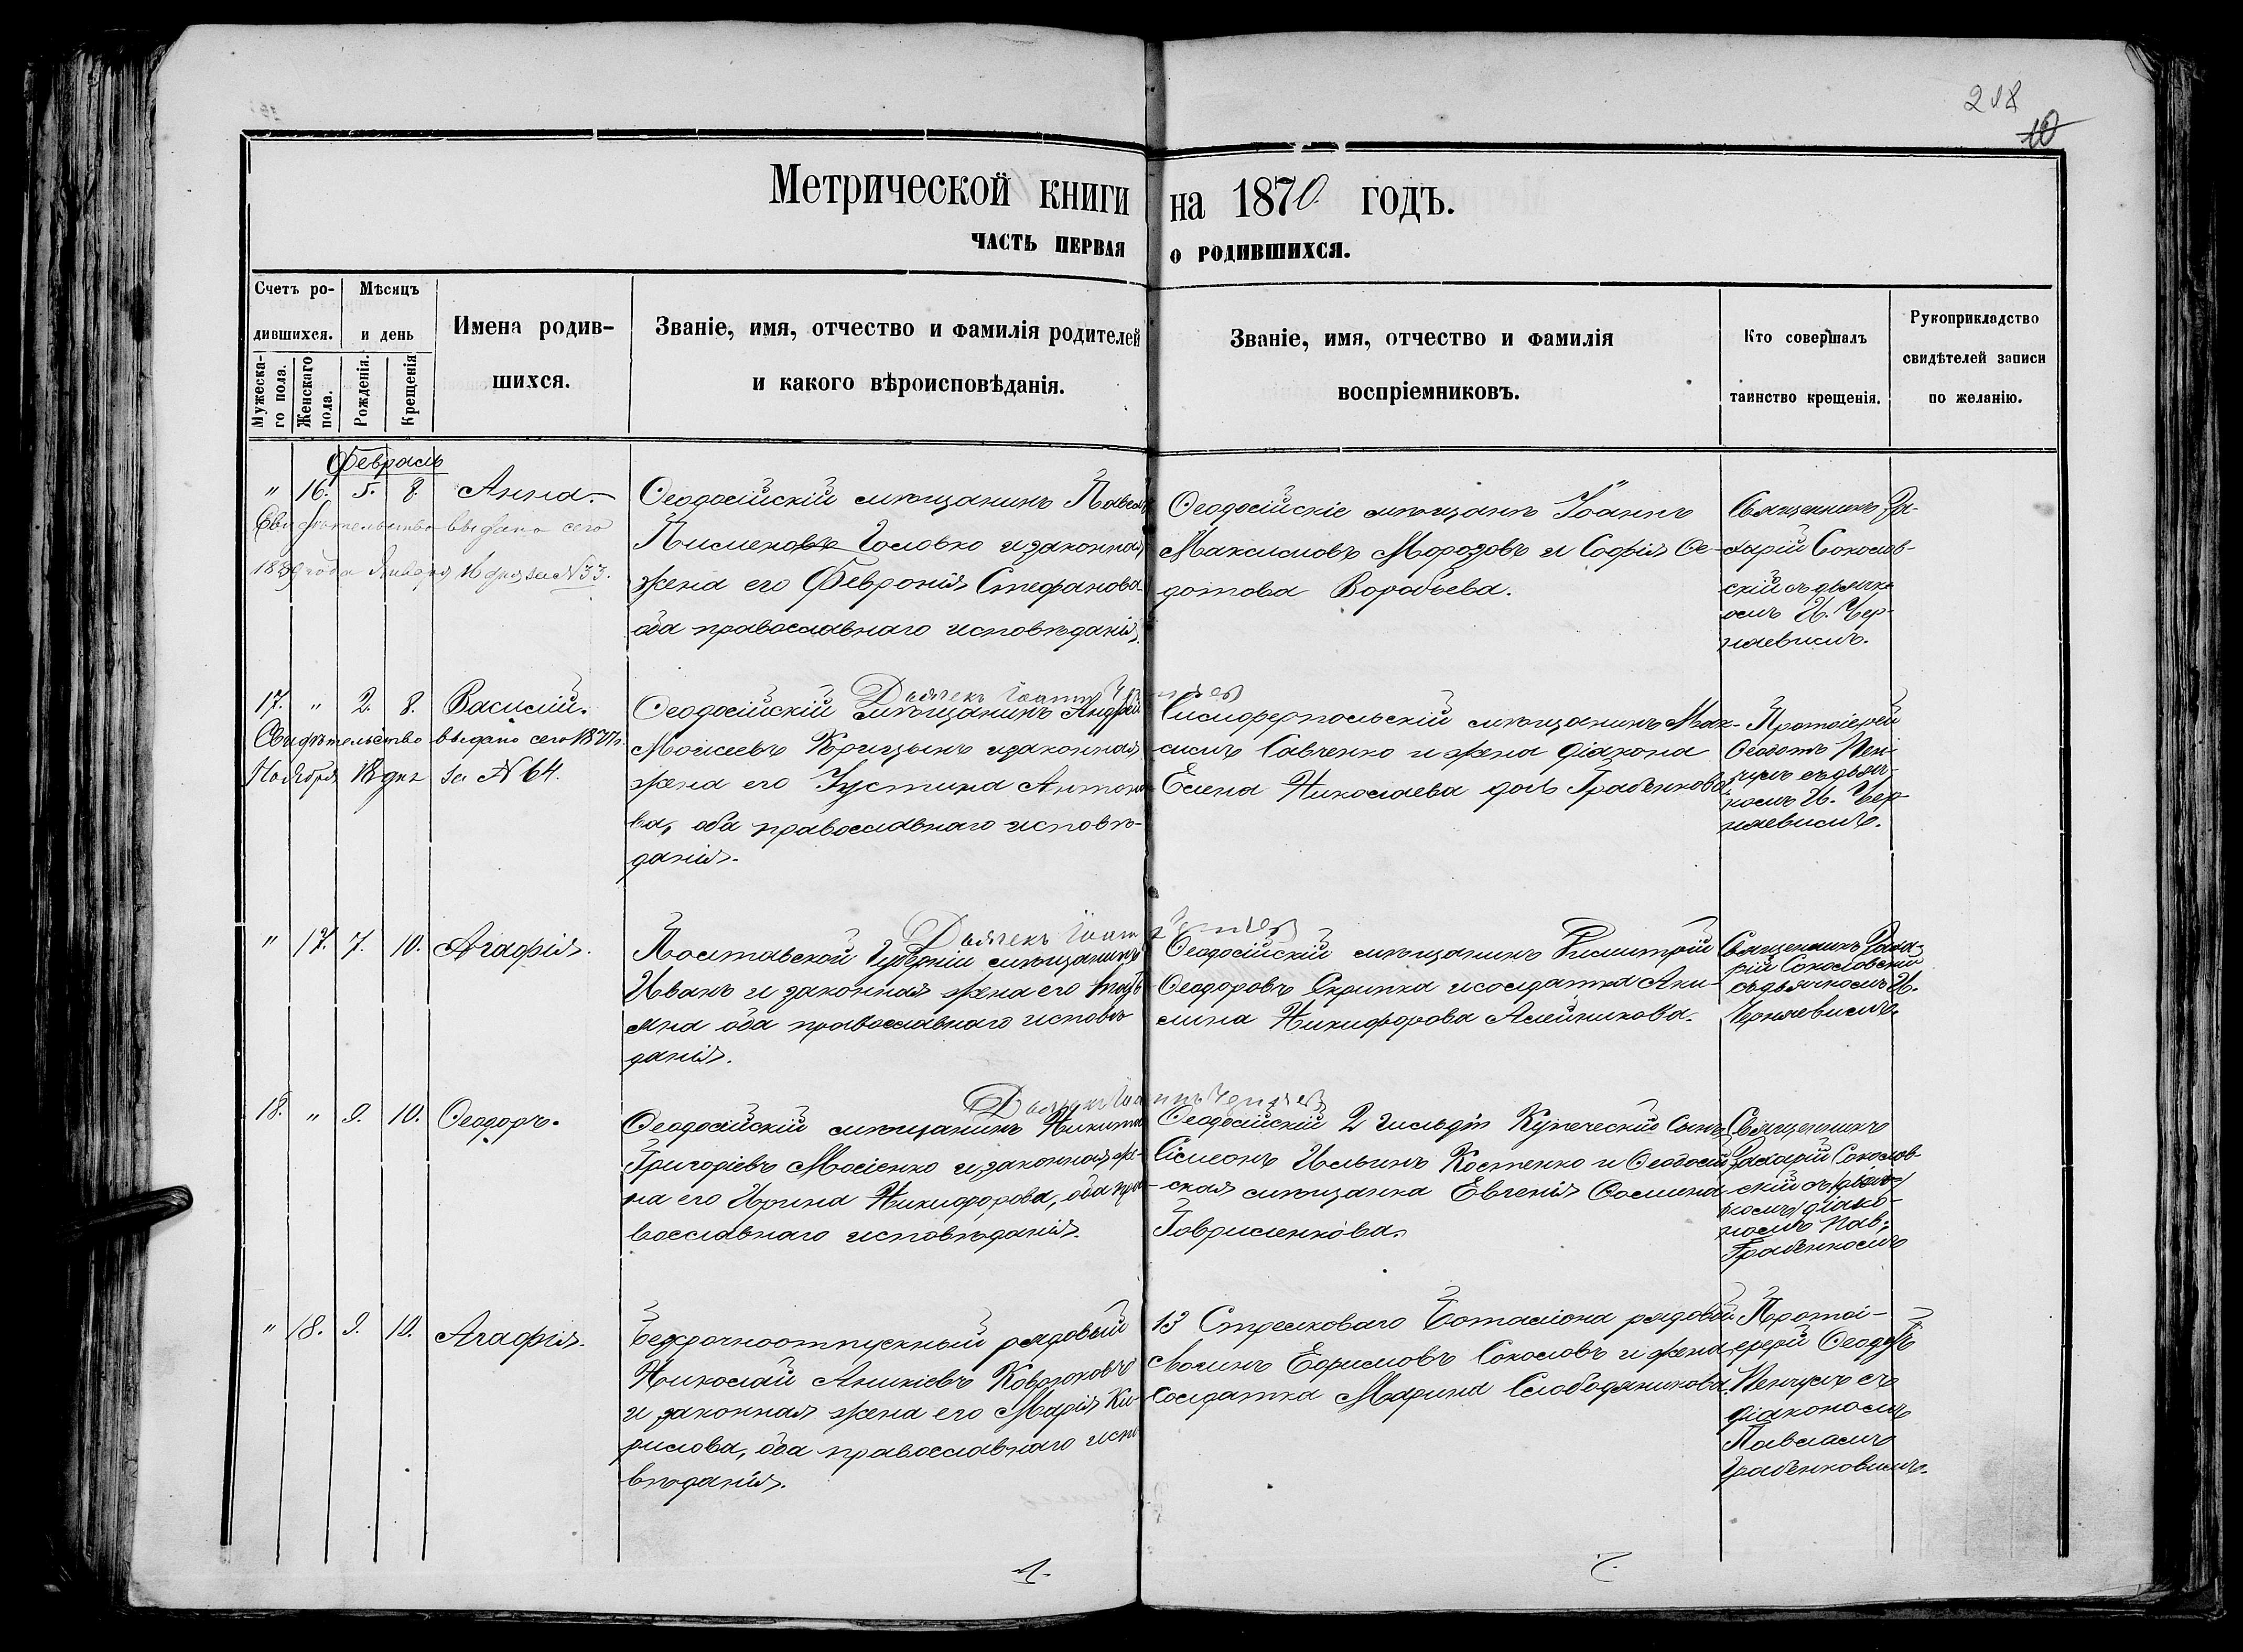 218
10
Метрической книги на 1870 годъ.
ЧАСТЬ ПЕРВАЯ О РОДИВШИХСЯ.
Счетъ ро-
дившихся.
Мужеска-
го пола.
Женскаго
пола.
Мѣсяцъ
и день
Рожденія.
Крещенія
Имена родив-
шихся.
Званіе, имя, отчество и фамилія родителей
и какого вѣроисповѣданія.
Званіе, имя, отчество и фамилія
воспріемниковъ.
Кто совершалъ
таинство крещенія.
Рукоприкладство
свидѣтелей записи
по желанію.
Февраль
" 16. 5. 8. Анна.
Свидѣтельство выдано сего
года Января 16 дня за № 33.
Ѳеодосійскій мѣщанинъ Павелъ
Головко и законная
жена его Февронія Стефанова
оба православнаго исповѣданія.
Ѳеодосійскіе мѣщане Іоаннъ
Максимовъ Морозовъ и Софія Ѳе-
дотова Воробьева.
Священникъ За-
харій Соколов-
скій съ дьячк-
омъ И. Чер-
няевымъ.
17. " 2. 8. Василій.
Свидѣтельство выдано сего
Ноября 18 дня за № 64.
Дьячекъ Іоаннъ Черняев
Ѳеодосійскій мѣщанинъ Андрей
Моисеевъ Корицынъ и законная
жена его Іустина Антоно-
ва, оба православнаго исповѣ-
данія.
Симферопольскій мѣщанинъ Мак-
симъ Савченко и жена діакона
Елена Николаева Грабенкова.
Протоіерей
Ѳеодотъ
съ дьяч-
комъ И. Чер-
няевымъ.
" 17. 7. 10. Агафія.
Дьячекъ Іоаннъ Черняев
Полтавской Губерніи мѣщанинъ
Иванъ и законная жена его
оба православнаго исповѣ-
данія.
Ѳеодосійскій мѣщанинъ Димитрій
Ѳеодоровъ Скрипка и солдатка Аки-
лина Никифорова Алейникова.
Священникъ Заха-
рій Соколовскій
съ дьячкомъ И.
Черняевымъ.
18. " 9. 10. Ѳеодоръ.
Дьячекъ Іоаннъ Черняев
Ѳеодосійскій мѣщанинъ Никита
Григоріевъ Мосіенко и законная же-
на его Ирина Никифорова, оба пра-
вославнаго исповѣданія.
Ѳеодосійскій 2 гильдіи Купеческій Сынъ
Сімеонъ Ильинъ Костенко и Ѳеодосій-
ская мѣщанка Евгенія Ѳомина
Гавриленкова.
Священникъ
Захарій Соколов-
скій съ
діако-
номъ Пав.
Грабенкомъ
" 18. 9. 10. Агафія.
Безсрочноотпускный рядовый
Николай Аникіевъ Ковтюковъ
и законная жена его Марія Ки-
рилова, оба православнаго испо-
вѣданія.
13 Стрелковаго Баталіона рядовой
Логинъ Ефимовъ Соколовъ и жена
солдатка Марина Слободяникова.
Протоі-
ерей Ѳеодотъ
съ
діакономъ
Павломъ
Грабенковымъ.